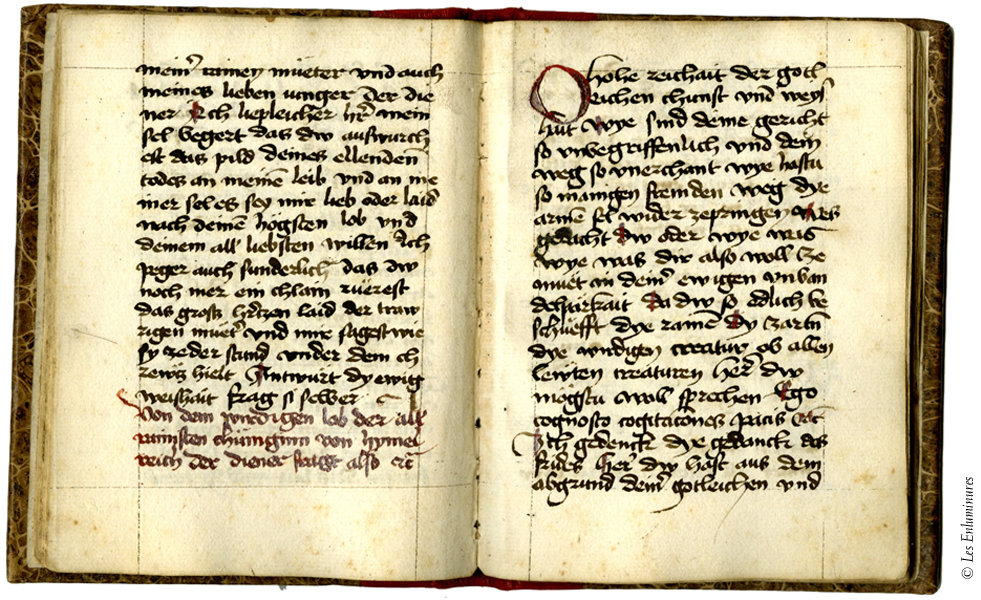 mein͛ rainen mueter vnd auch
meines lieben iunger Der die
ner Ach liepleicher hr͛ mein
sel begert das dw auswurch
est das pild deines ellenden
todes an meinē leib vnd an me
iner sel es sey mir lieb oder laid
nach deinē högsten lob vnd
deinem all liebsten willen Ich
peger auch sunderlich das dw
noch mer ein chlain ruerest
das gross hertzen laid der traw
rigen muet͛ vnd mir sagest wie
sy ze der stund vnder dem ch
rewtz hielt Antwurt dy ewig
weishait frag sy selber
Von dem wirdigen lob der all
rainsten chünginn von hymel
reich der diener fragt also etc̄
O hohe reichait der gotl
leichen chunst vnd weys
hait wye sind deine gericht
so vnbegriffenlich vnd dein
weg so vnerchant wye hastu
so manigen fremden weg dye
armē sel wider ze pringen Wes
gedacht dw oder wye was
wye was dir also woll ze
muet in dein͛ ewigen vnban
delparkait da dw so edlich be
schuefft dye rainē dy zartn̄
dye wirdigen creatur ob allen
lewten creaturen Her͛ dw
mögstu woll sprechen Ego
cognosco cogitacōnes pacis etc̄
Ich gedenck dye gedanck des
frides her͛ dw hast aus dem
abgrund dein͛ gotleichen vnd
© Les Enluminures